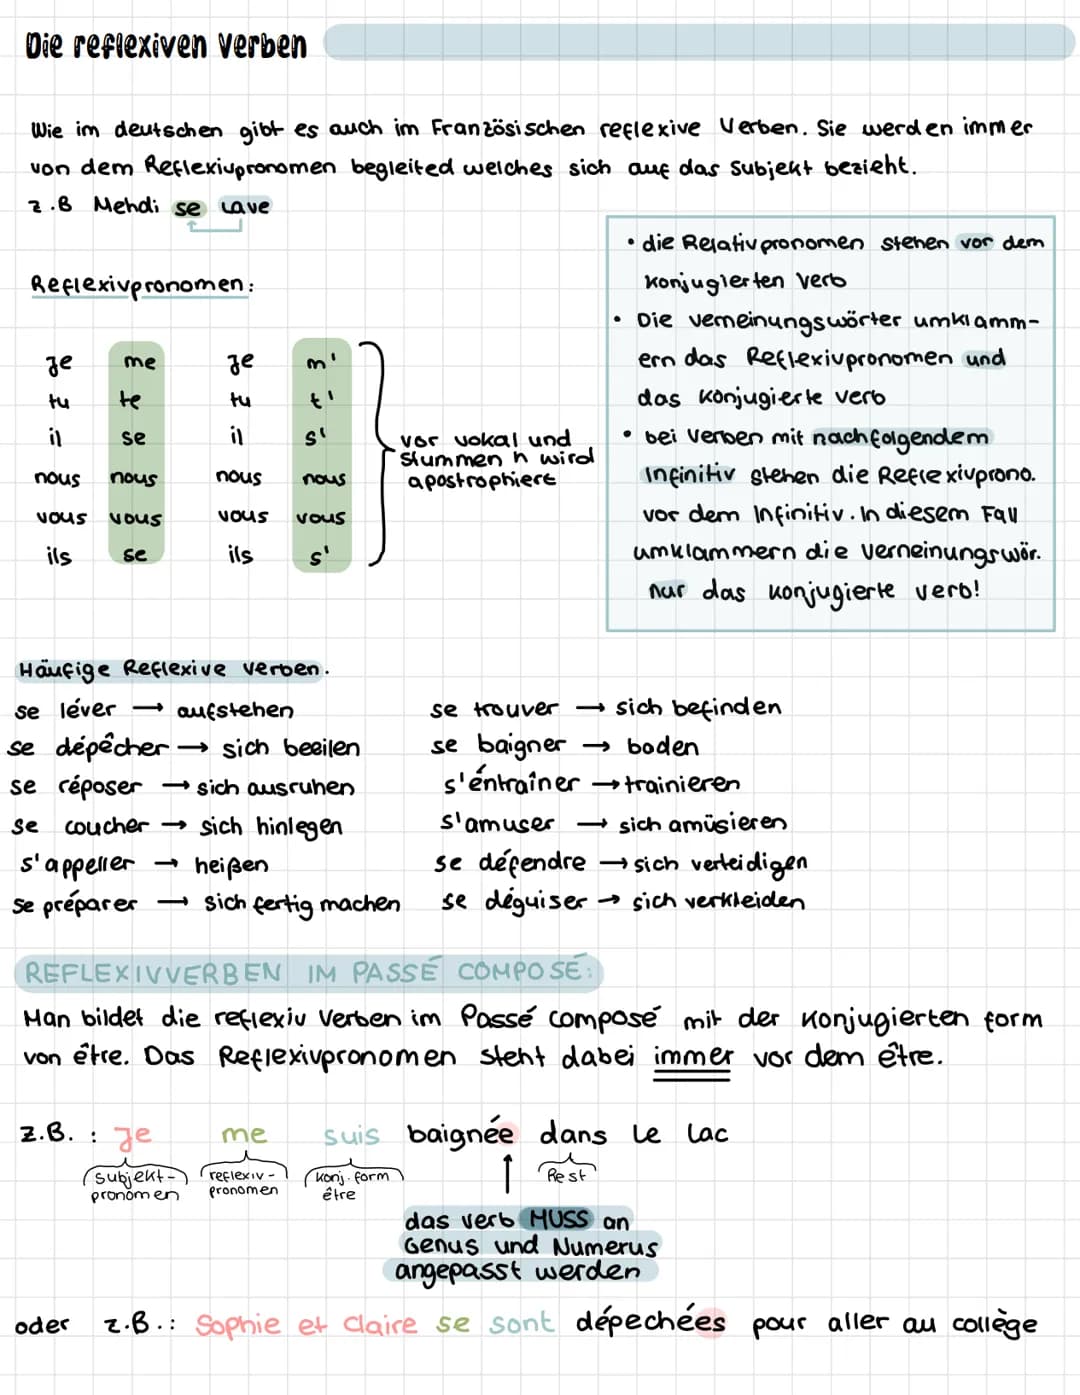 Die reflexiven Verben
Wie im deutschen gibt es auch im Französischen reflexive Verben. Sie werden immer
von dem Reflexivpronomen begleited welches sich auf das Subjekt bezieht.
z.B Mehdi se lave
Reflexivpronomen:
Je me Je m'
tu te tu t'
il se il s'
nous nous nous nous
vous vous vous vous
ils se ils s'
vor vokal und
stummen h wird
apostrophiert
• die Relativpronomen stehen vor dem
konjugierten Verb
• Die verneinungswörter umklamm-
ern das Reflexivpronomen und
das konjugierte verb
• bei Verben mit nachfolgendem
Infinitiv stehen die Reflexivprono.
vor dem Infinitiv. In diesem Fall
umklammern die Verneinungswör.
nur das konjugierte verb!
Häufige Reflexive verben.
se léver → aufstehen
se dépêcher → sich beeilen
se réposer → sich ausruhen
se coucher → sich hinlegen
s'appeller → heißen
se préparer → sich fertig machen
se trouver → sich befinden
se baigner → baden
s'éntraîner → trainieren
s'amuser → sich amüsieren
se défendre → sich verteidigen
se déguiser → sich verkleiden
REFLEXIVVERBEN IM PASSÉ COMPOSÉ:
Man bildet die reflexiv Verben im Passé composé mit der Konjugierten form
von être. Das Reflexivpronomen steht dabei immer vor dem être.
z.B. : Je me suis baignée dans le lac
subjekt-
pronomen
reflexiv-
pronomen
konj. form
être
Rest
das verb MUSS an
Genus und Numerus
angepasst werden
oder z.B.: Sophie et Claire se sont dépechées pour aller au collège